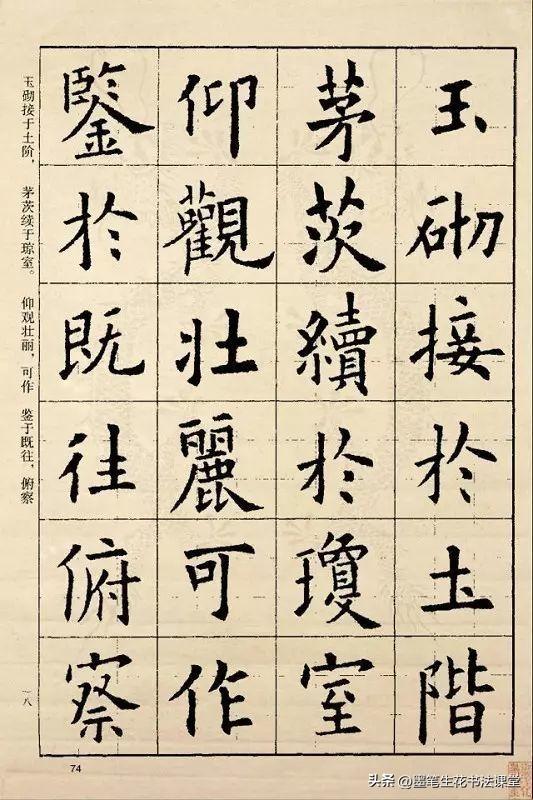 玉砌接於土階
茅茨續於瓊室
仰觀壯麗可作
鑒於既往俯察
玉砌接于土阶， 茅茨续于琼室。 仰观壮丽，可作 鉴于既往，俯察
一八
74
头条 @墨笔生花书法课堂